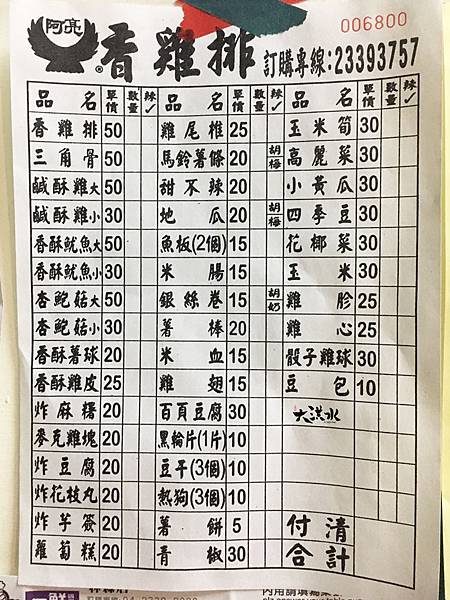 006800
阿亮 ® 香雞排 訂購專線:23393757
品名 單價 數量 辣✓ 品名 單價 數量 辣✓ 品名 單價 數量 辣✓
香雞排 50 雞尾椎 25 玉米筍 30
三角骨 50 馬鈴薯條 20 胡梅 高麗菜 30
鹹酥雞大 50 甜不辣 20 小黃瓜 30
鹹酥雞小 30 地瓜 20 胡梅 四季豆 30
香酥魷魚大 50 魚板(2個) 15 花椰菜 30
香酥魷魚小 30 米腸 15 玉米 30
杏鮑菇大 50 銀絲卷 15 胡奶 雞胗 25
杏鮑菇小 30 薯棒 20 雞心 25
香酥薯球 20 米血 15 骰子雞球 30
香酥雞皮 25 雞翅 15 豆包 10
炸麻糬 20 百頁豆腐 30 大洪水
麥克雞塊 20 黑輪片(1片) 10
炸豆腐 20 豆干(3個) 10
炸花枝丸 20 熱狗(3個) 10
炸芋簽 20 薯餅 5 付清
蘿蔔糕 20 青椒 30 合計